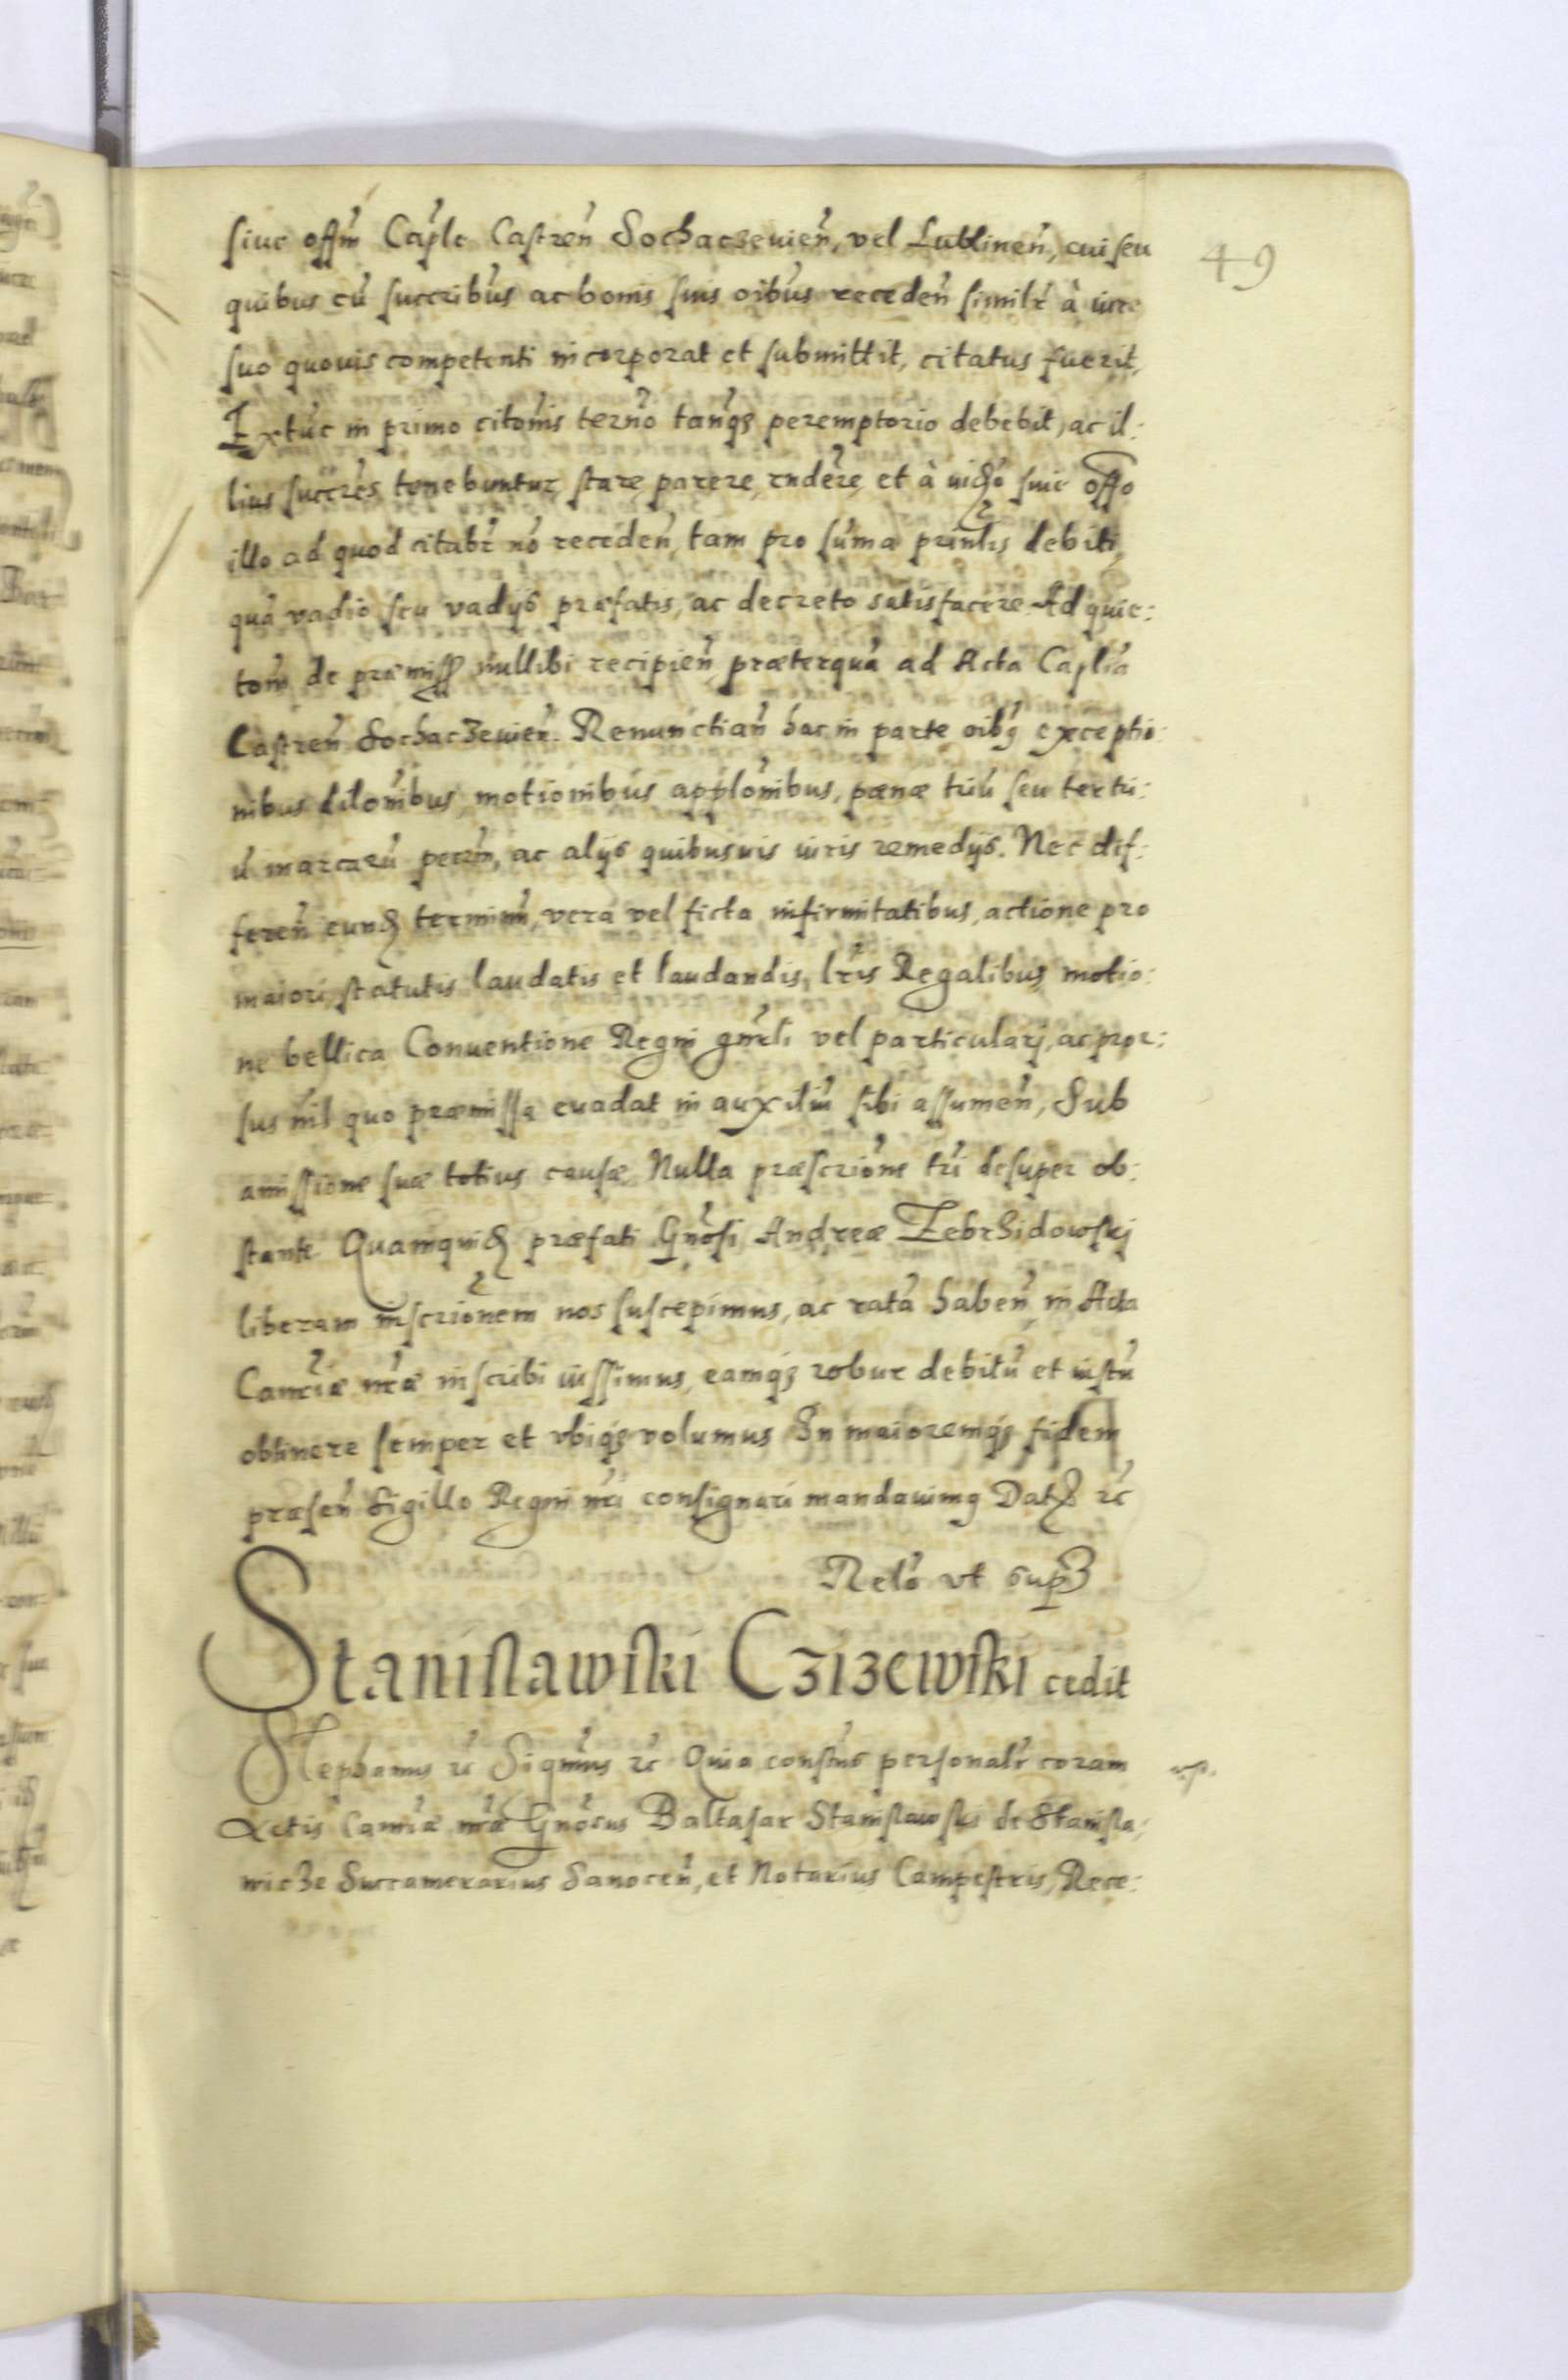 49
siue offm̄ Caple Castren̄ Sochaczeuien̄, vel Lublinen̄, cui seu
quibus cū succribus ac bonis suis oibus receden̄ similr à iure
suo quouis competenti incorporat et submittit, citatus fuerit,
Extūc in primo citonis terno tanq peremptorio debebit, ac il:
lius succres tenebuntur stare parere, rndere, et à iudo siue offo
illo ad quod citabr nō receden̄, tam pro sūma prinlis debiti,
quā vadio seu vadijs præfatis, ac decreto satisfacere. Ad quie:
tom̄ de præmiss nullibi recipien̄ præterquā ad Acta Caplia
Castren̄ Sochaczeuien̄. Renunctian̄ hac in parte oibq exceptio:
nibus dilonibus, motionibus applonibus, pœnæ triū seu tertii:
ū marcarū pecūn, ac alijs quibusuis iuris remedijs. Nec dif:
feren̄ eund terminū, vera vel ficta infirmitatibus, actione pro
maiori, statutis laudatis et laudandis, lris Regalibus, motio:
ne bellica Conuentione Regni gnrli vel particularj, ac pror:
sus nil quo præmissa euadat in auxiliū sibi assumen̄, Sub
amissione suæ totius causæ. Nulla præscrione tri desuper ob:
stante. Quamquid præfati Gnosi Andreæ Zebrzidowskj
liberam inscrionem nos suscepimus, ac ratā haben̄, in Acta
Cancriæ nræ inscribi iussimus, eamq robur debitū et iustū
obtinere semper et vbiq volumus. In maioremq fidem
præsen̄ Sigillo Regni nri consignari mandauimq Dat rc
Relo vt supra
Stanislawski Cziзewski cedit
Stephanus rc Signus rc Quia constus personalr coram
Actis Cancriæ nræ Gnosus Baltasar Stanislawski de Stanisla:
wicze Succamerarius Sanocen̄, et Notarius Campestris, Rece: